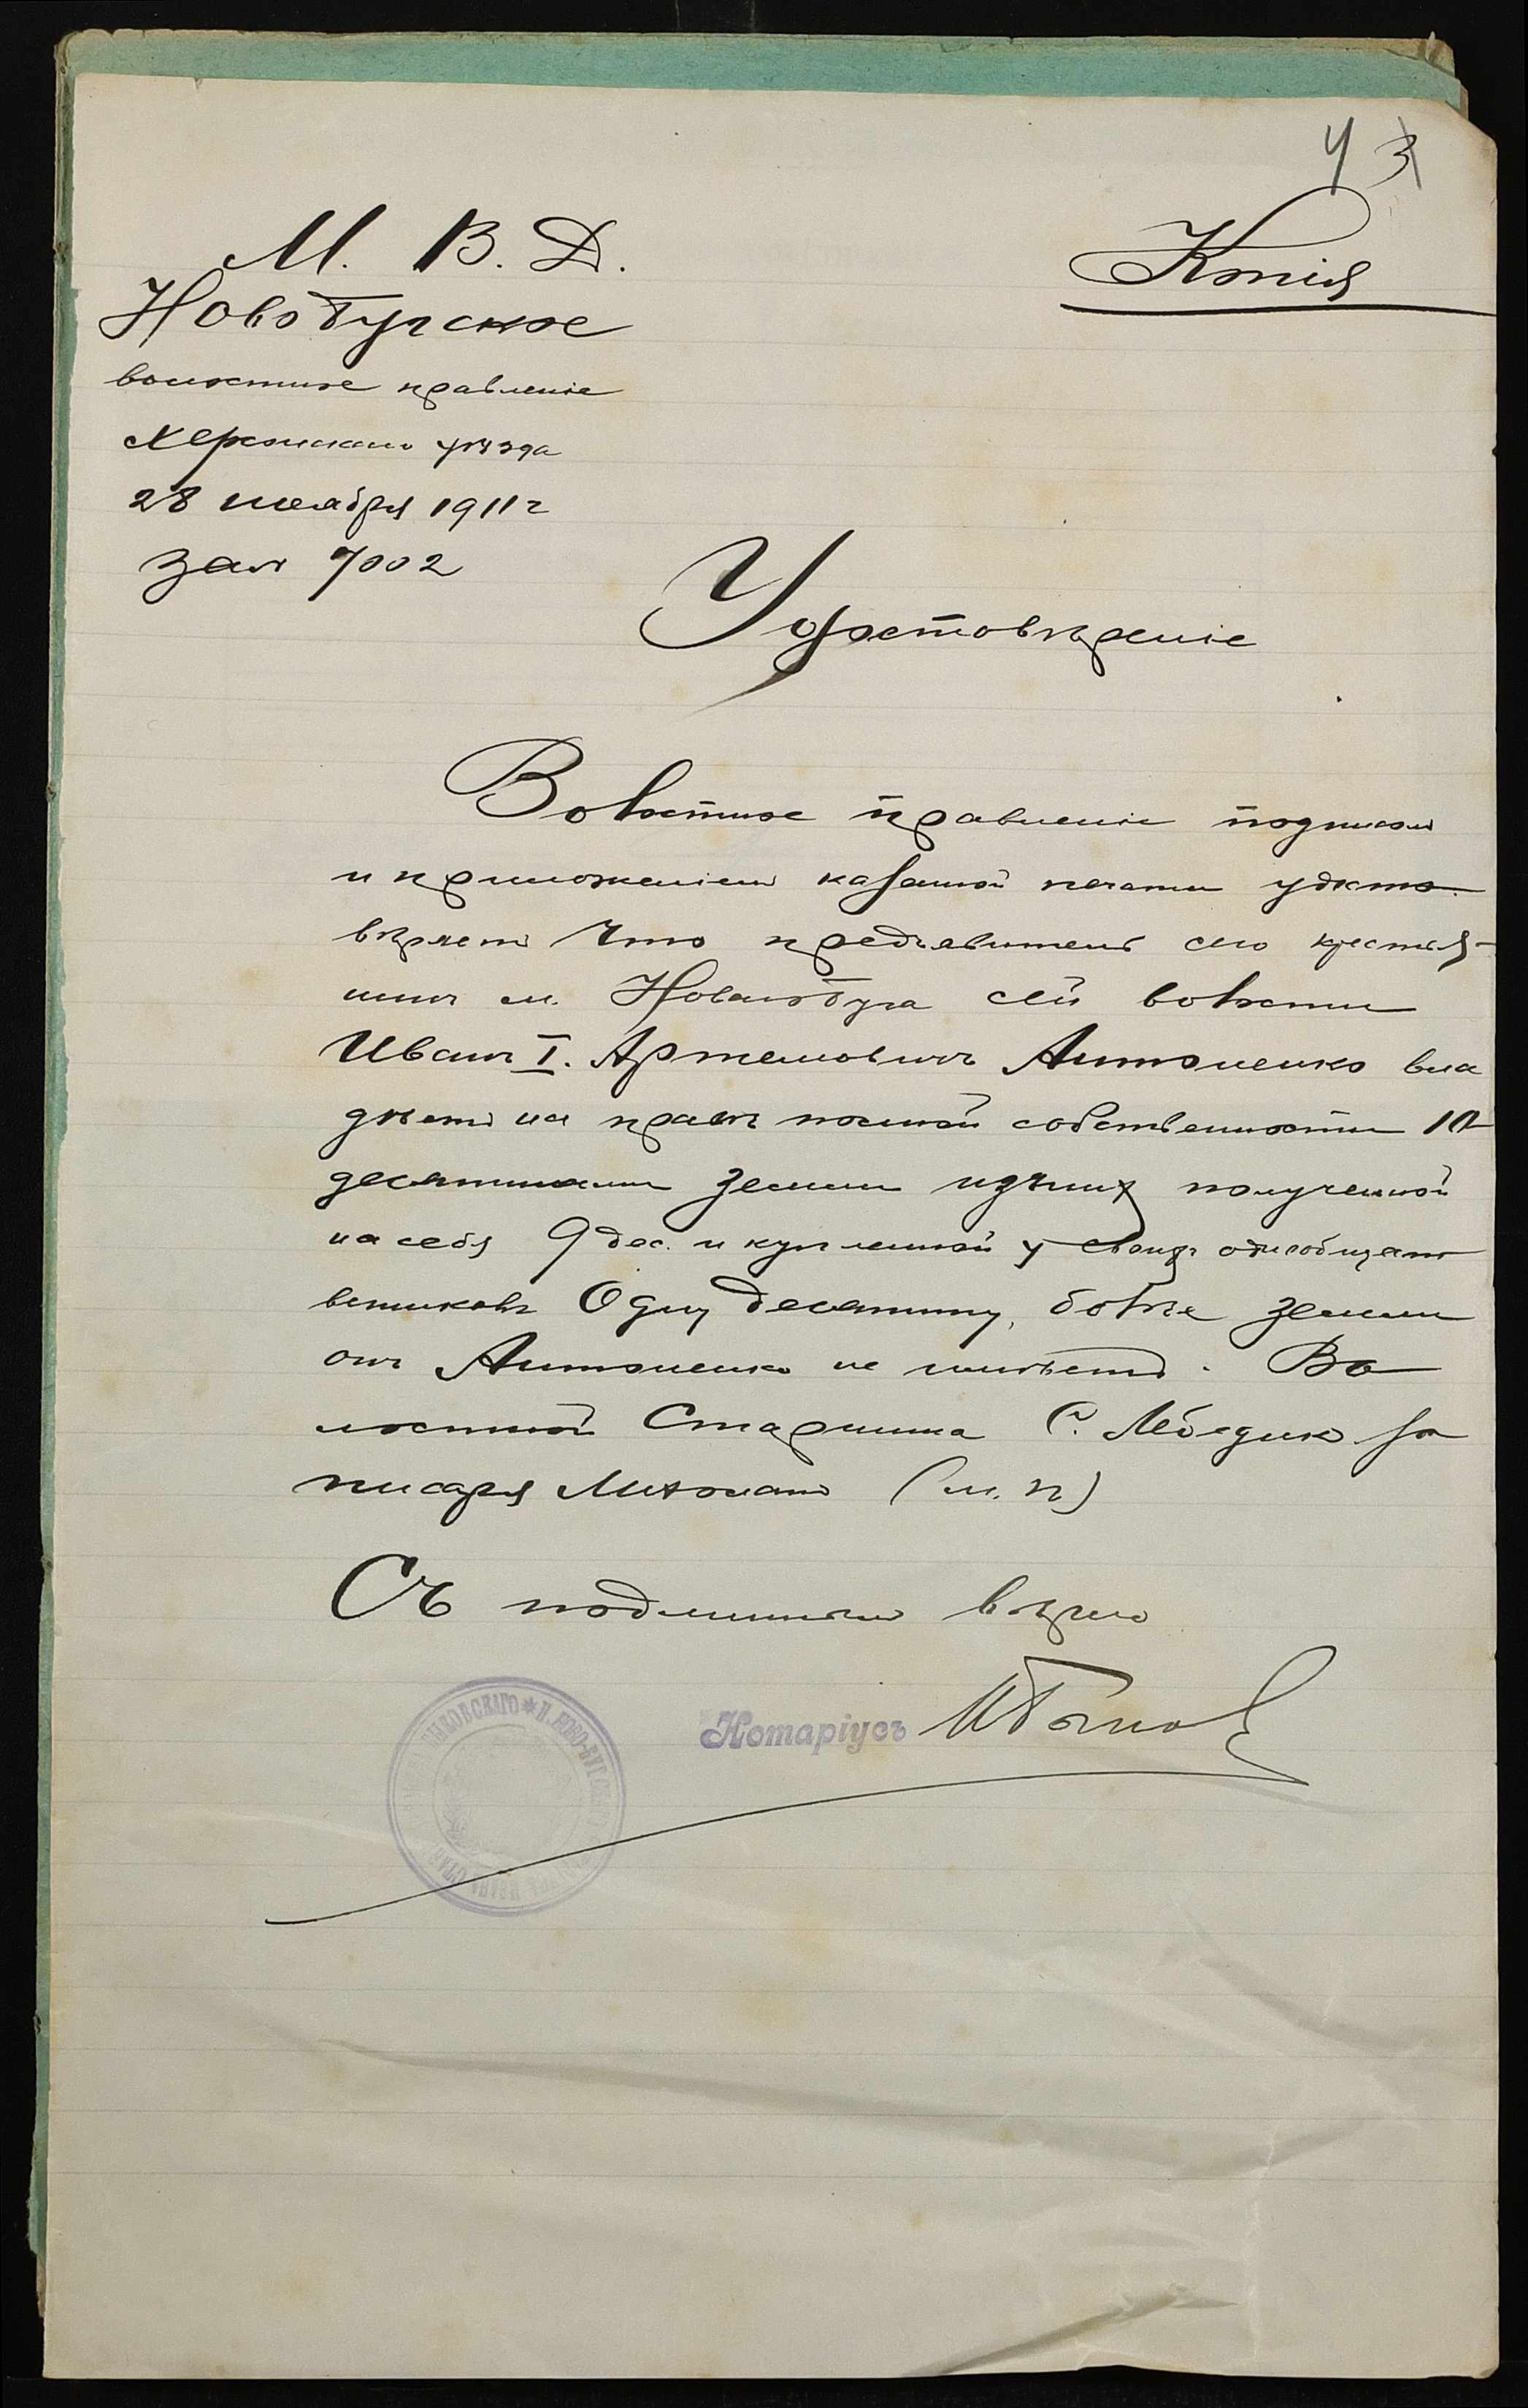 4 3
М. В. Д.
Копія
Новобугское
волостное правленіе
Херсонскаго уѣзда
28 ноября 1911 г
за № 7002
Удостовѣреніе
Волостное правленіе подписью
и приложеніемъ казенной печати удосто-
вѣряетъ что предъявитель сего крестья-
нинъ м. Новаго Буга сей волости
Иванъ I. Артемовичъ Антоненко вла
дѣетъ на правѣ полной собственности 10
десятинами земли изъ нихъ полученной
на себя 9 дес. и купленной у своихъ однообщест
венниковъ Одну десятину, болѣе земли
онъ Антоненко не имѣетъ. Во
лостной Старшина С. Лебедик за
писаря (м. п)
Съ подлиннымъ вѣрно
Нотаріусъ